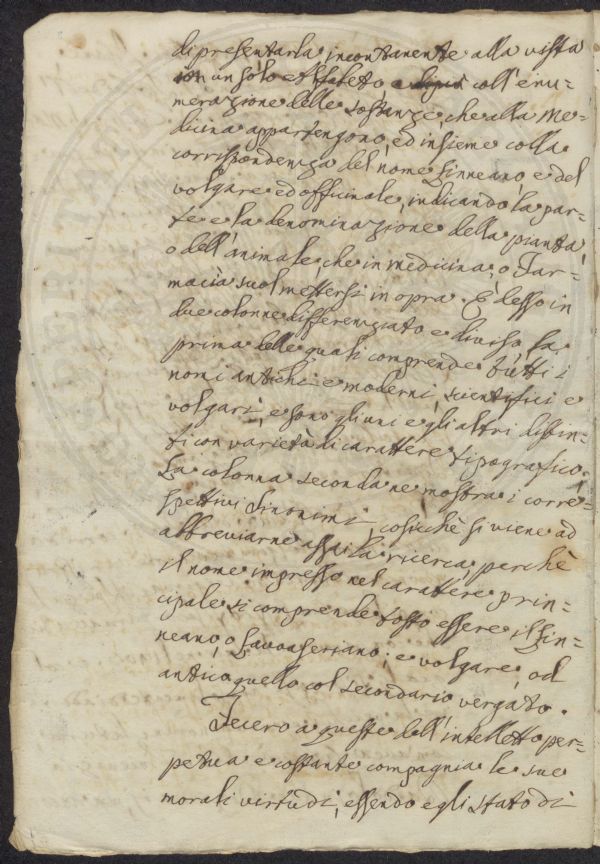 di presentarla incontanente alla vista
con un solo alfabeto, e dipiù coll'enu=
merazione delle sostanze, che alla me=
dicina appartengono, ed insieme colla
corrispondenza del nome Linneano, e del
volgare ed officinale, indicando la par=
te e la denominazione della pianta,
o dell'animale, che in medicina, o Far=
macia suol mettersi in opra. È desso in
due colonne differenziato e diviso la
prima delle quali comprende tutti i
nomi antichi e moderni, scientifici e
volgari, e sono gli uni e gli altri distin=
ti con varietà di carattere tipografico.
La colonna seconda ne mostra i corre=
spettivi sinonimi, cosicchè si viene ad
abbreviarne assai la ricerca, perchè
il nome impresso nel carattere prin=
cipale si comprende tosto essere il Lin=
neano, o Lavoaseriano; e volgare, od
antico quello col secondario vergato.
Fecero a queste dell'intelletto per=
petua e costante compagnia le sue
morali virtudi, essendo egli stato di